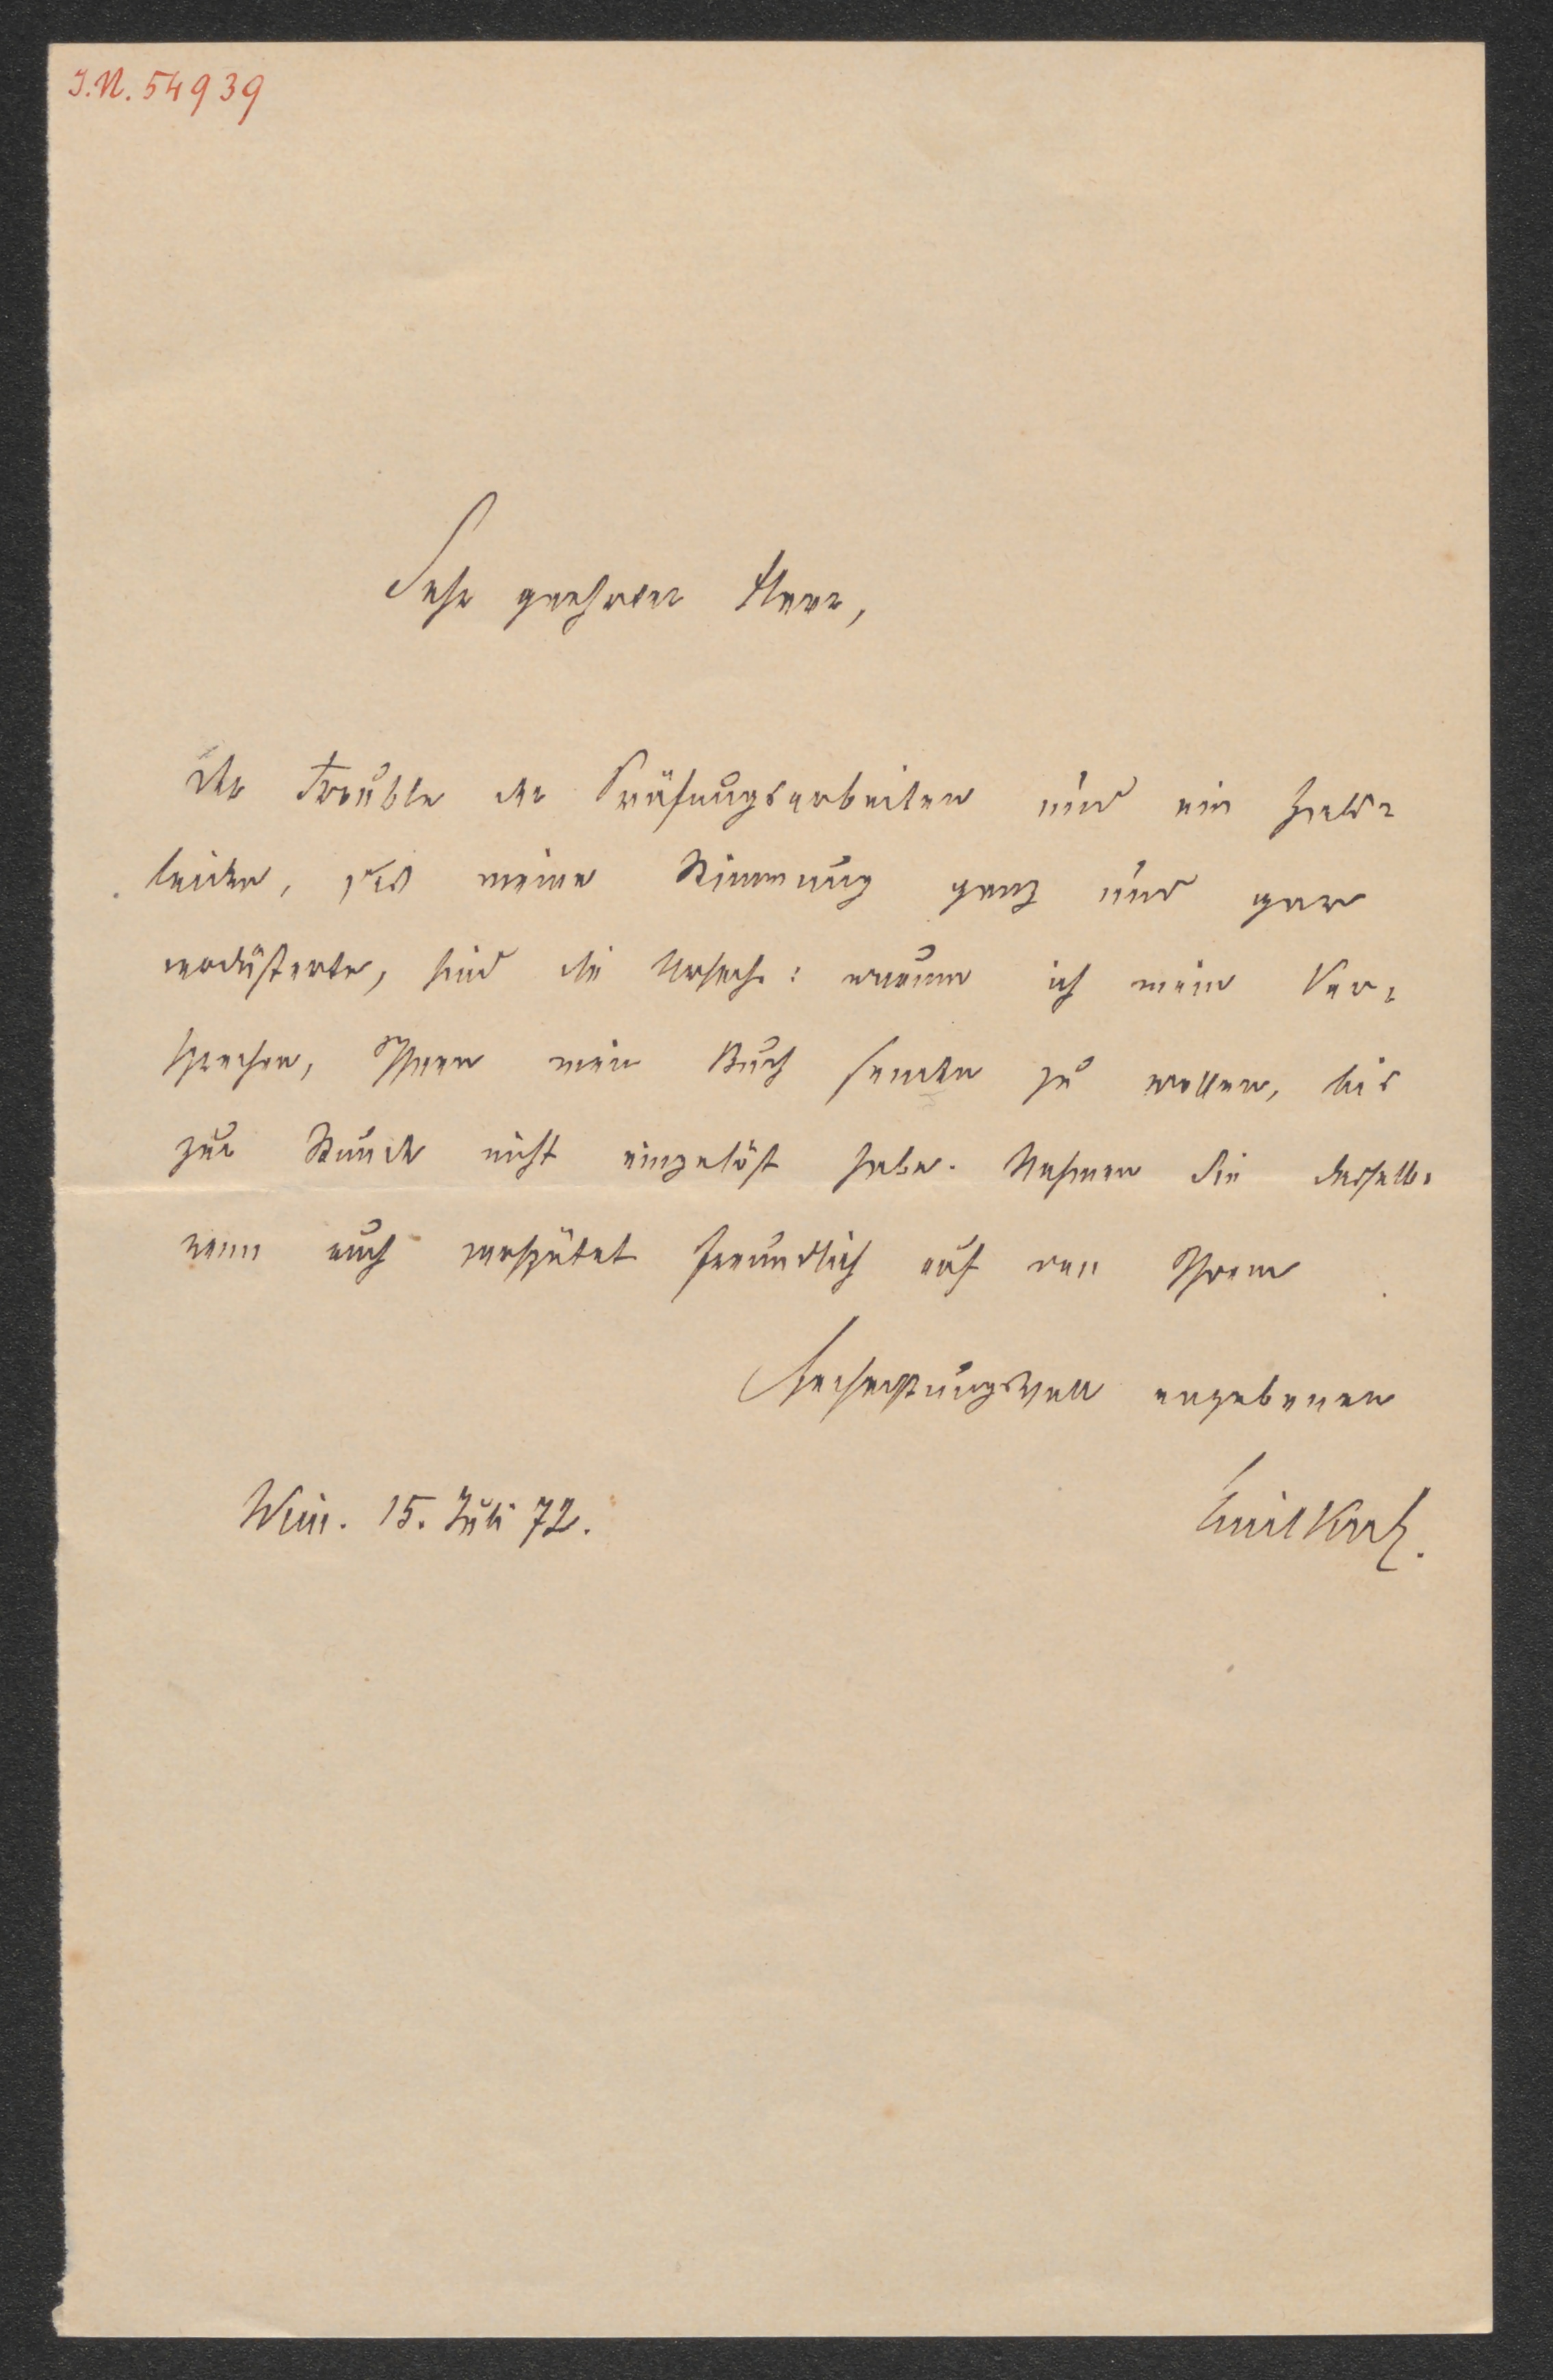 I.N. 54939
Sehr geehrter Herr,
Der Trouble der Prüfungsarbeiten und ein Hals-
leiden, das meine Stimmung ganz und gar
verdüsterte, sind die Ursache: warum ich mein Ver-
sprechen, Ihnen mein Buch senden zu wollen, bis
zur Stunde nicht eingelöst habe. Nehmen Sie dasselbe
wenn auch verspätet freundlich auf von Ihrem
hochachtungsvoll ergebenen
Wien. 15. Juli 72.
Emil Kuh.